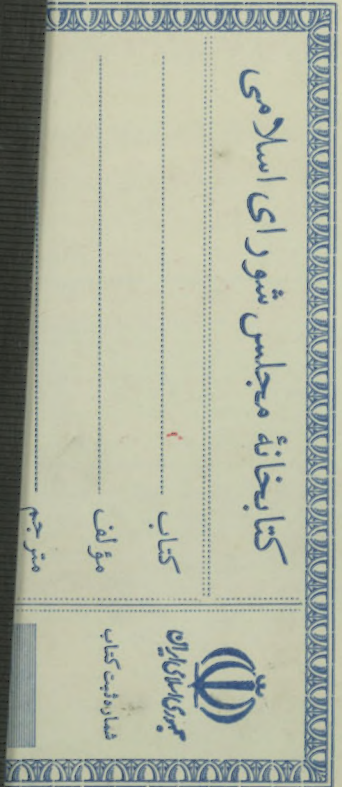 کتابخانهٔ مجلس شورای اسلامی
کتاب
مؤلف
مترجم
جمهوری اسلامی ایران
شماره ثبت کتاب